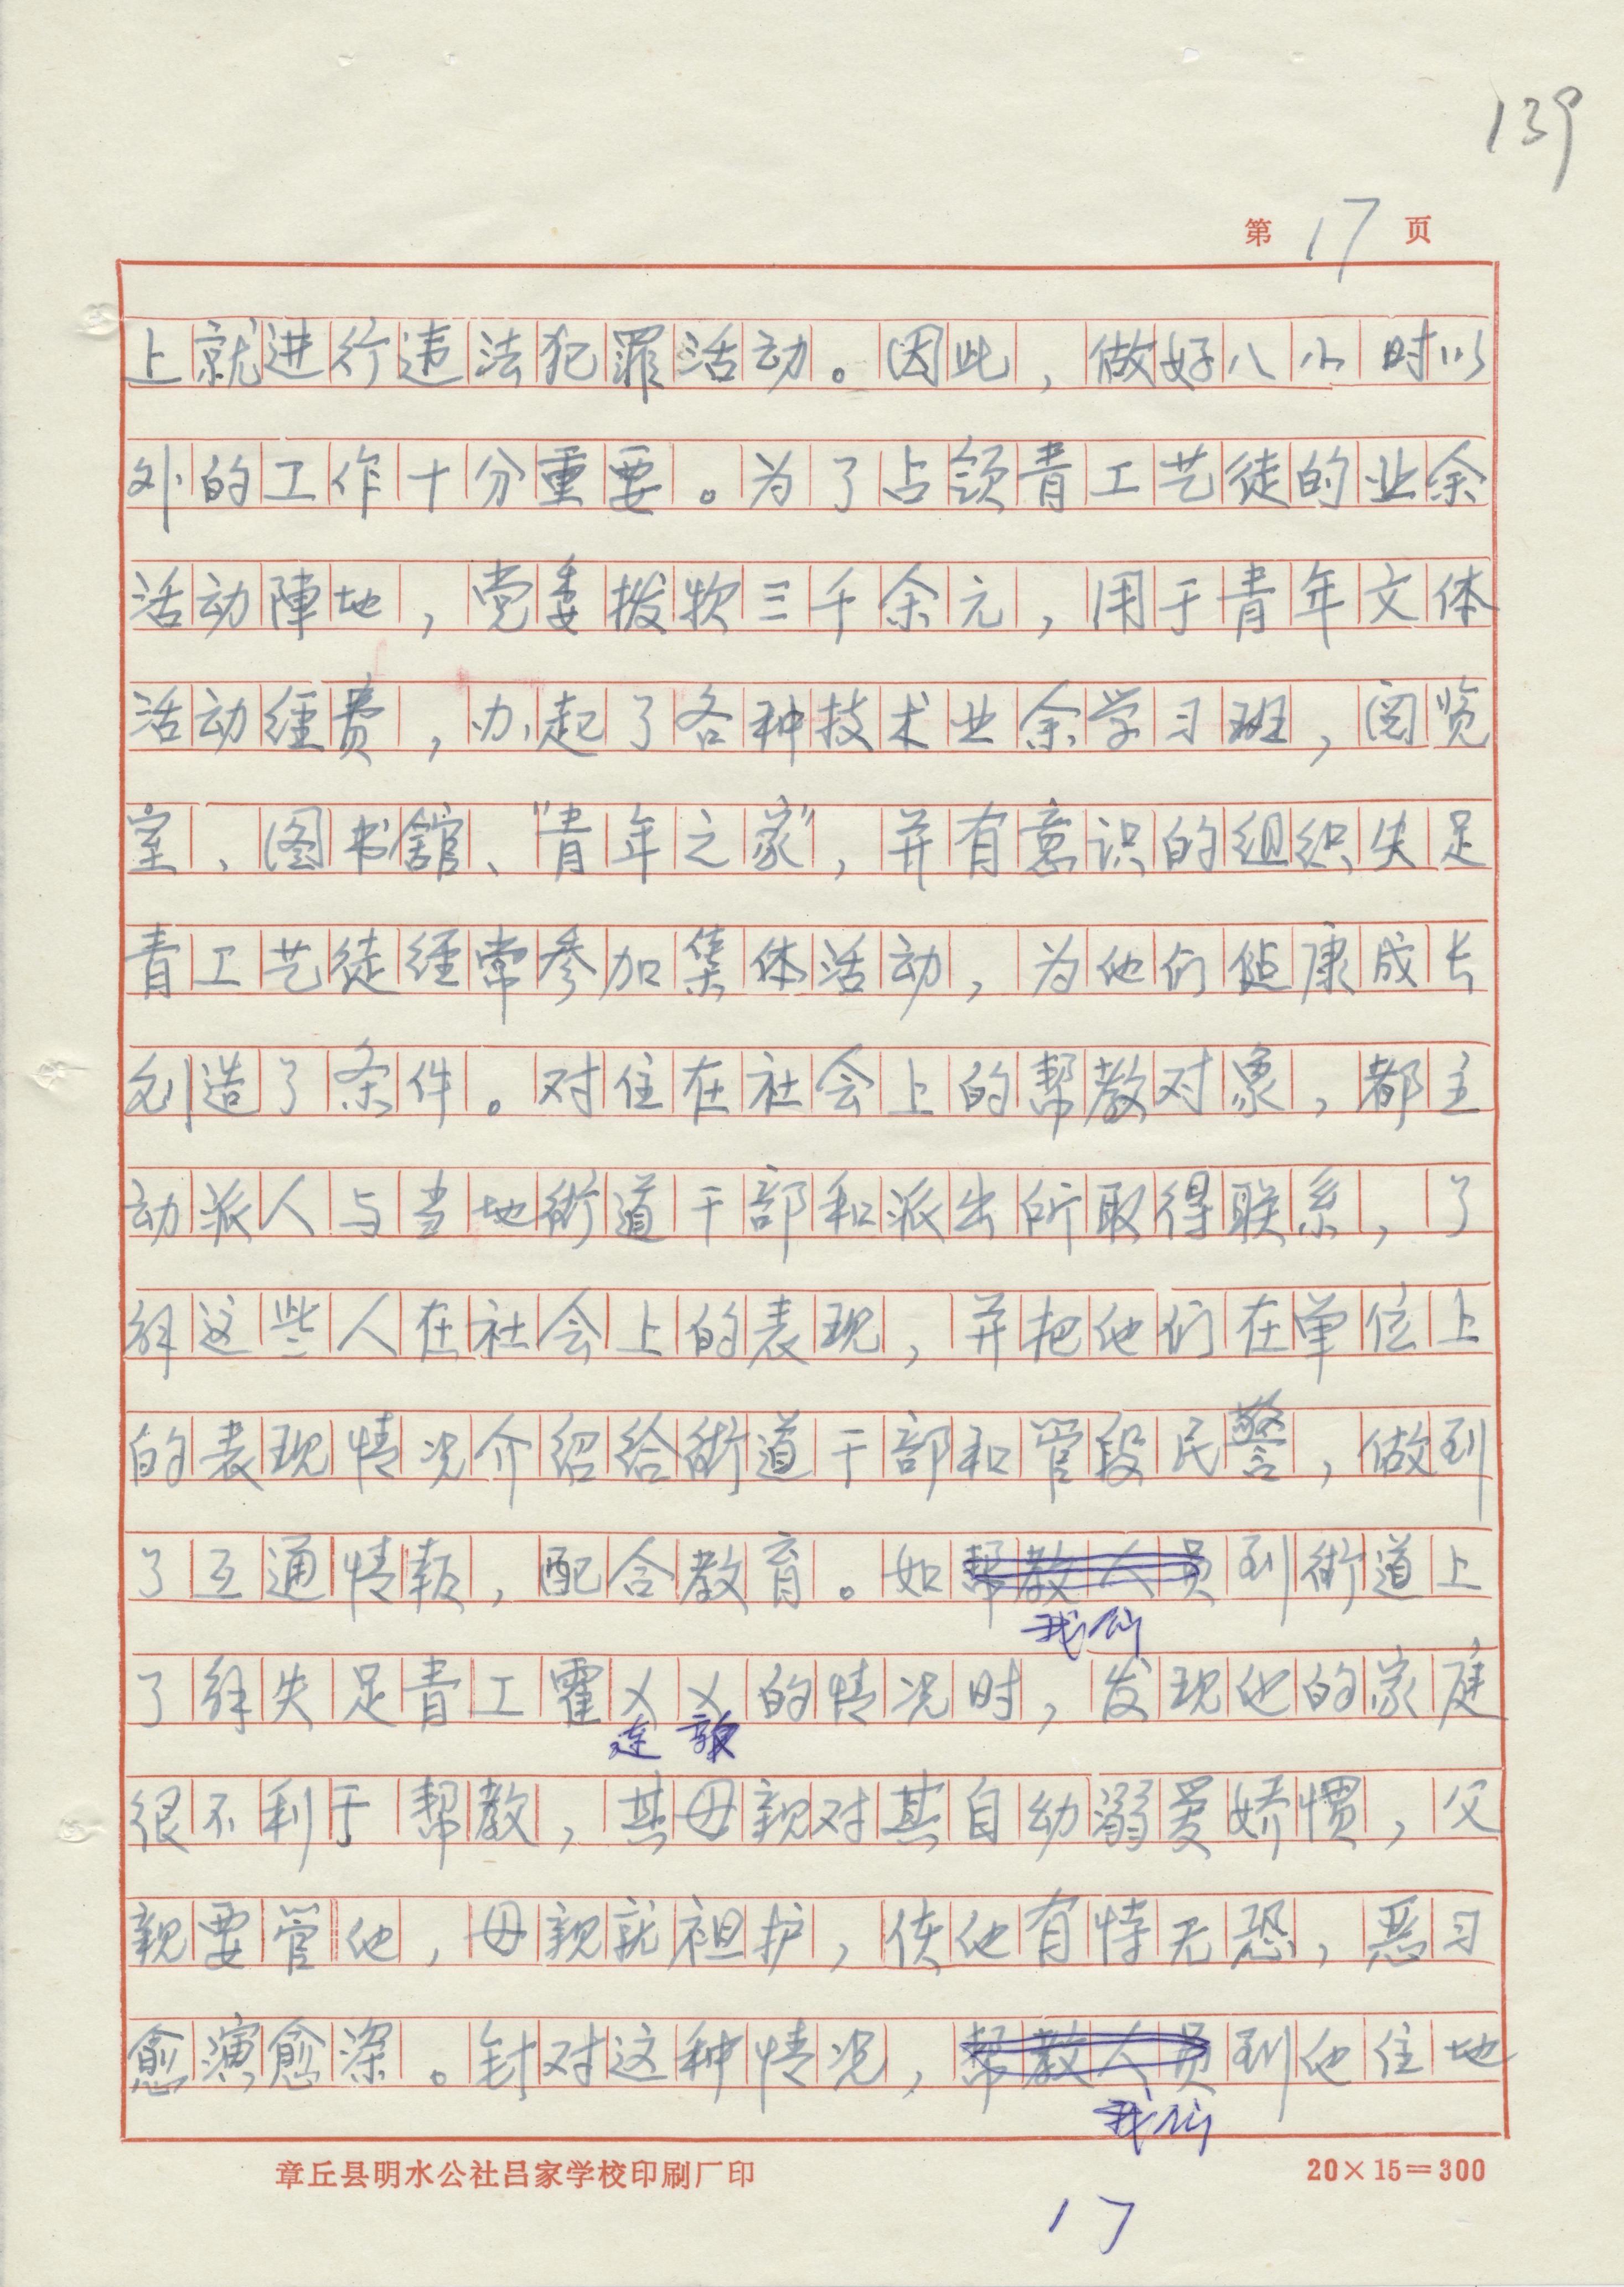 139
第 17 页
上就进行违法犯罪活动。因此，做好八小时以
外的工作十分重要。为了占领青工艺徒的业余
活动陣地，党委拨款三千余元，用于青年文体
活动经费，办起了各种技术业余学习班，阅览
室、图书館、"青年之家"，并有意识的组织失足
青工艺徒经常参加集体活动，为他们健康成长
创造了条件。对住在社会上的帮教对象，都主
动派人与当地街道干部和派出所取得联系，了
解这些人在社会上的表现，并把他们在单位上
的表现情况介绍给街道干部和管段民警，做到
了互通情報，配合教育。如帮教人员到街道上
我们
了解失足青工霍××的情况时，发现他的家庭
连
很不利于帮教，其母親对其自幼溺爱娇惯，父
親要管他，母親就袒护，使他有恃无恐，恶习
愈演愈深。针对这种情况，帮教人员到他住地
我们
章丘县明水公社吕家学校印刷厂印
20×15=300
17